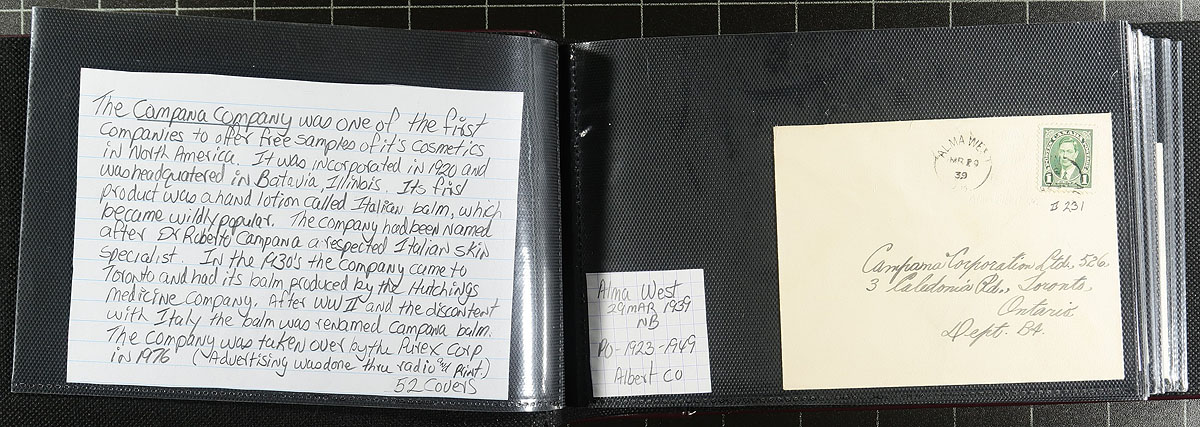 The Campana Company was one of the first
companies to offer free samples of it's cosmetics
in North America. It was incorporated in 1920 and
was headquatered in Batavia, Illinois. Its first
product was a hand lotion called Italian balm, which
became wildly popular. The company had been named
after Dr Roberto Campana a respected Italian skin
specialist. In the 1930's the company came to
Toronto and had its balm produced by the Hutchings
medicine company. After WW II and the discontent
with Italy the balm was renamed campana balm.
The company was taken over by the Purex Corp
in 1976 (Advertising was done thru radio and print)
52 Covers
Alma West
29 MAR 1939
NB
PO-1923-1949
Albert Co
ALMA WEST
MR 29
39
1 1
231
Campama Corporation Ltd., 526
3 Caledonia Rd., Toronto,
Ontario
Dept. B4.